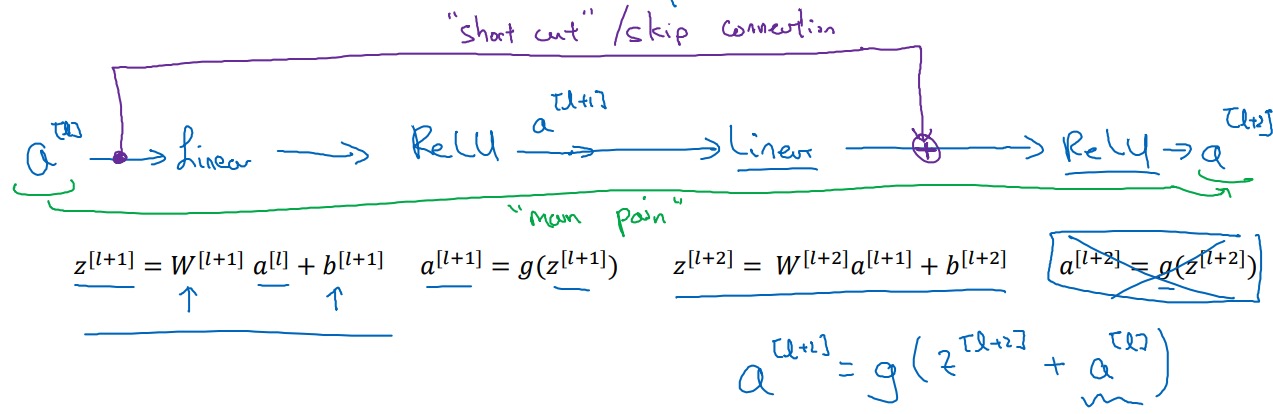 "short cut" / skip connection
a^[l] → Linear → ReLU a^[l+1] → Linear ⊕ → ReLU → a^[l+2]
"main pain"
z^[l+1] = W^[l+1] a^[l] + b^[l+1] a^[l+1] = g(z^[l+1]) z^[l+2] = W^[l+2]a^[l+1] + b^[l+2] a^[l+2] = g(z^[l+2])
a^[l+2] = g(z^[l+2] + a^[l])